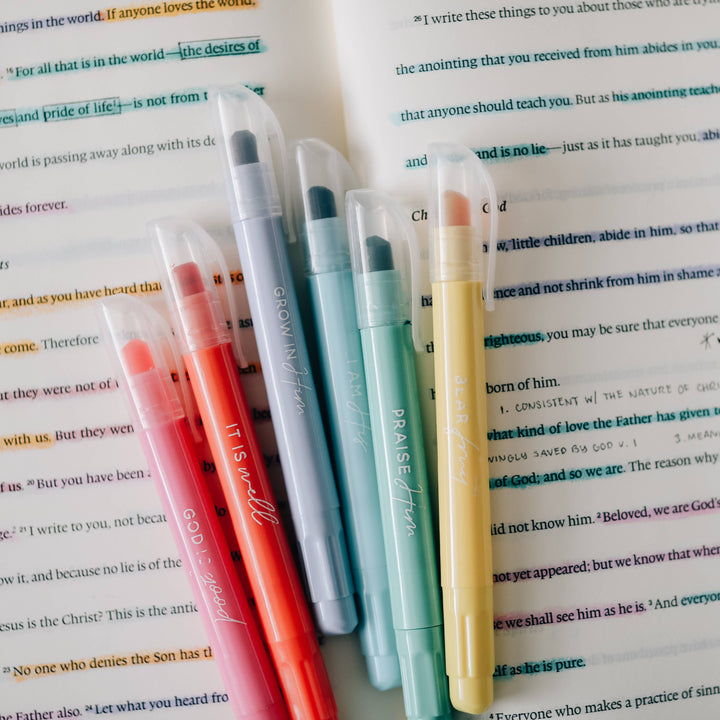 things in the world. If anyone loves the world,
15 For all that is in the world—the desires of
and pride of life—is not from
world is passing away along with its
forever.
and as you have heard that
come. Therefore
they were not of
with us. But they were
of us. 20 But you have been
21 I write to you, not
it, and because no lie is of the
is the Christ? This is the
23 No one who denies the Son has
Father also. 24 Let what you heard from
26 I write these things to you about those who are trying
the anointing that you received from him abides in you
that anyone should teach you. But as his anointing teaches
and is no lie—just as it has taught you,
God
little children, abide in him, so that
and not shrink from him in shame
righteous, you may be sure that everyone
born of him.
1. CONSISTENT W/ THE NATURE OF
what kind of love the Father has given to
SAVED BY GOD V. 1 3.
of God; and so we are. The reason why
did not know him. 2 Beloved, we are God's
not yet appeared; but we know that when
we shall see him as he is. 3 And everyone
as he is pure.
4 Everyone who makes a practice of
GOD IS good
IT IS well
GROW IN Him
I AM His
PRAISE Him
BEAR fruit